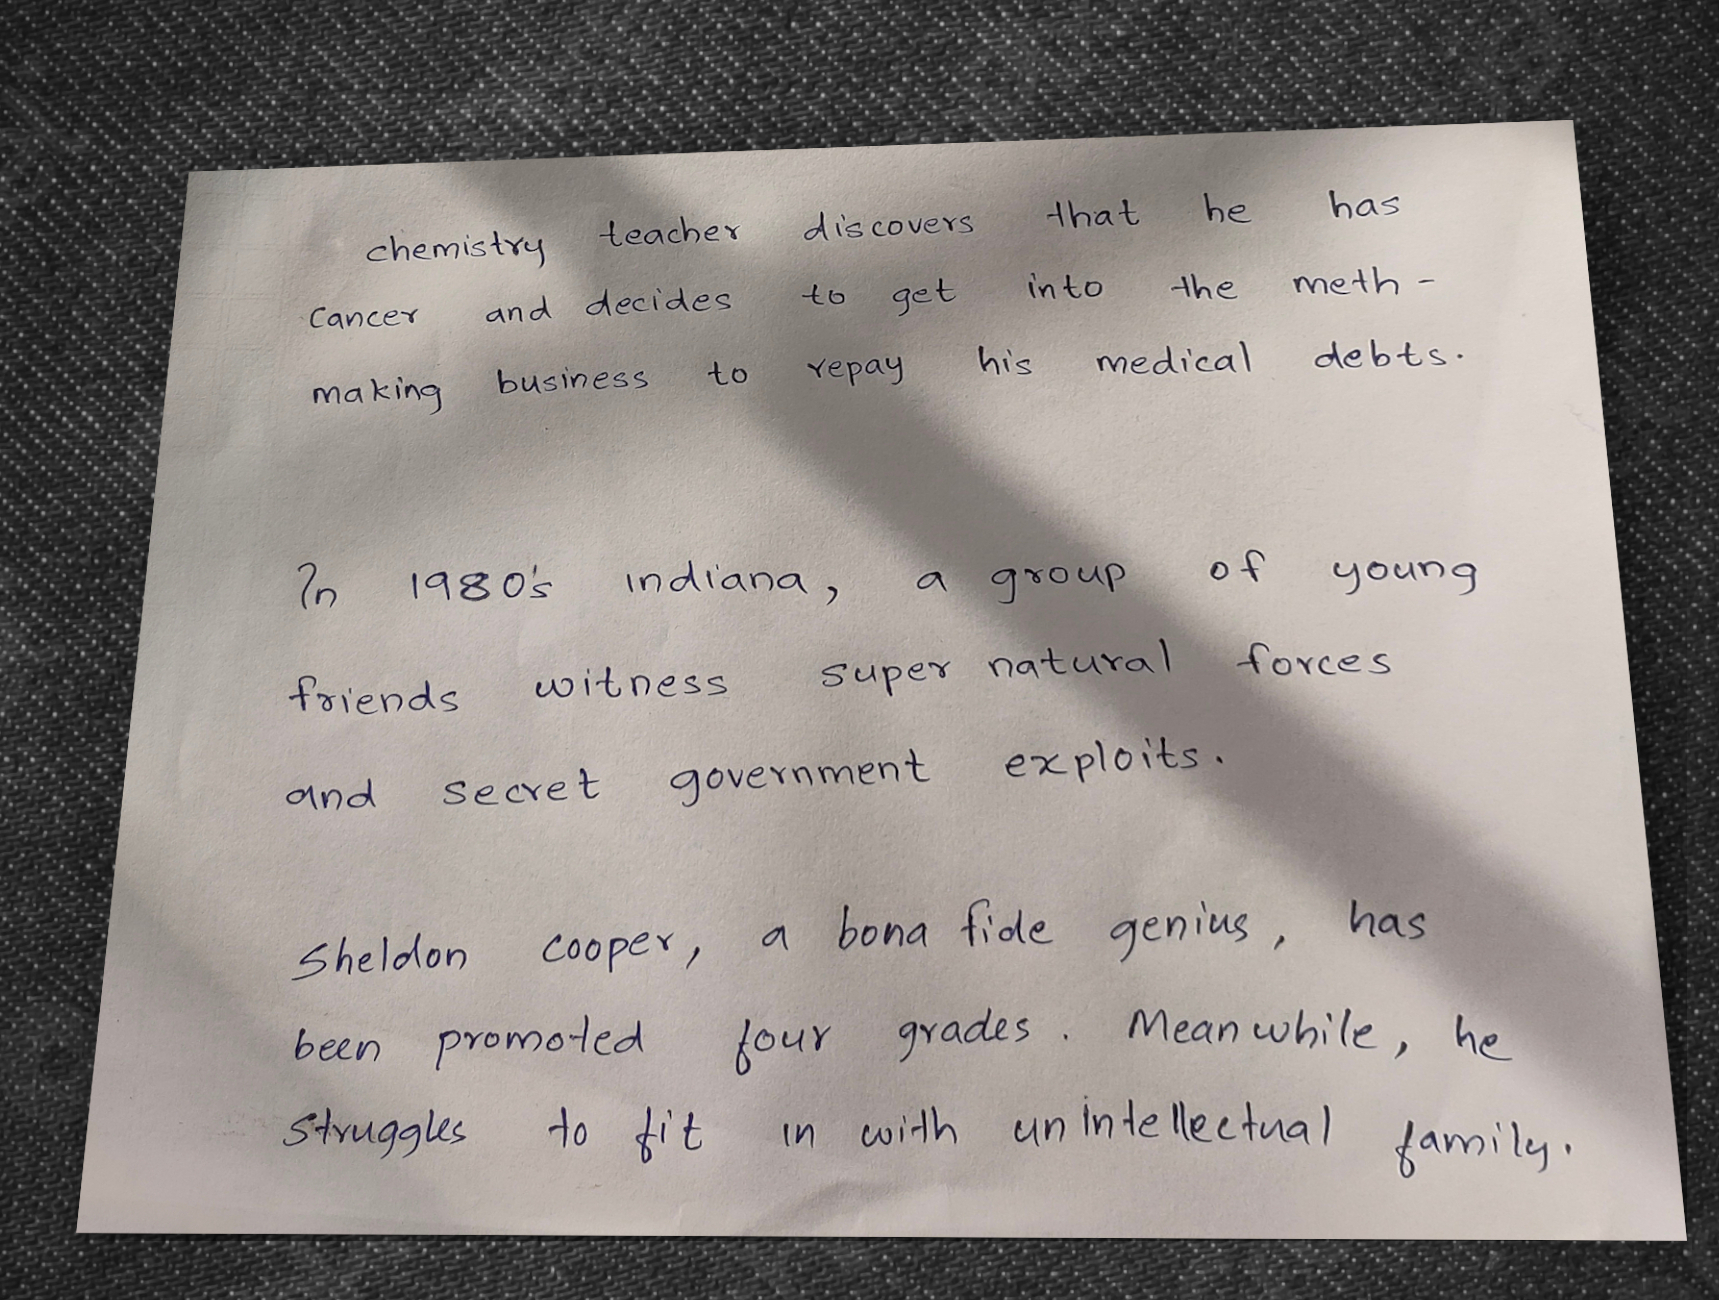 chemistry teacher discovers that he has
Cancer and decides to get into the meth-
making business to repay his medical debts.
In 1980's indiana, a group of young
friends witness super natural forces
and secret government exploits.
Sheldon cooper, a bona fide genius, has
been promoted four grades. Meanwhile, he
struggles to fit in with unintellectual family.